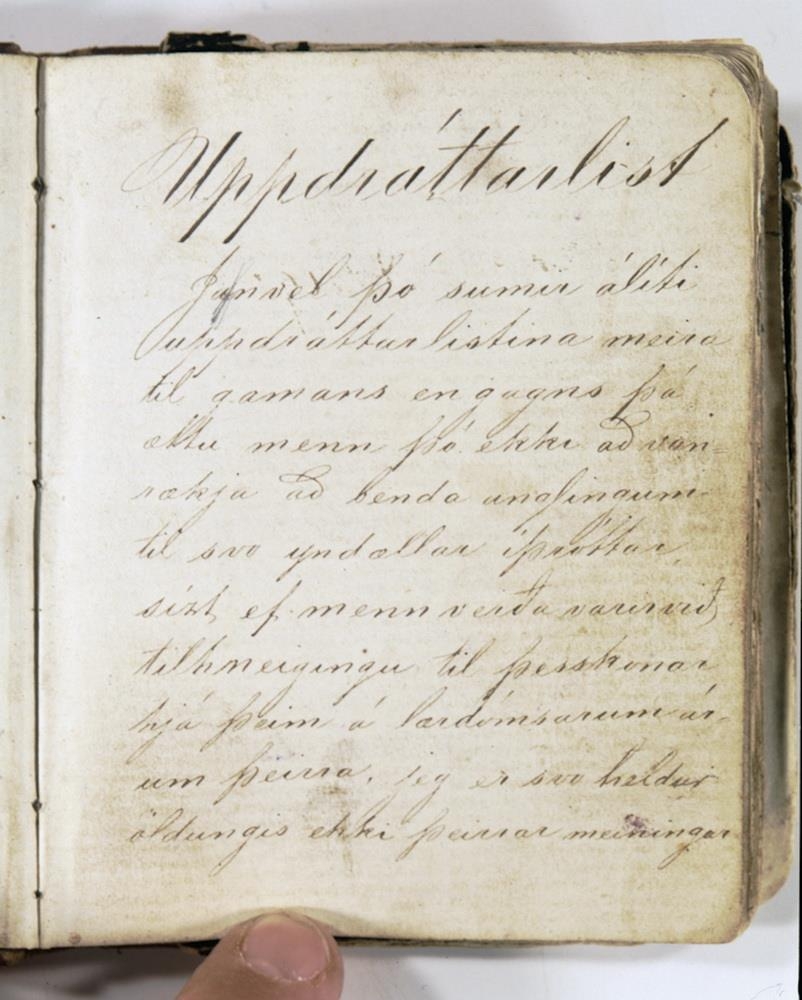 Uppdráttarlist
Jafnvel þó sumir álíti
uppdráttarlistina meira
til gamans en gagns þá
ættu menn þó ekki að van-
rækja að benda unglingum
til svo yndællar íþróttar,
sízt ef menn verða varir við
tilhneigingu til þesskonar
hjá þeim á lærdómsárum ár-
um þeirra. jeg er svo heldur
öldungis ekki þeirrar meiningar